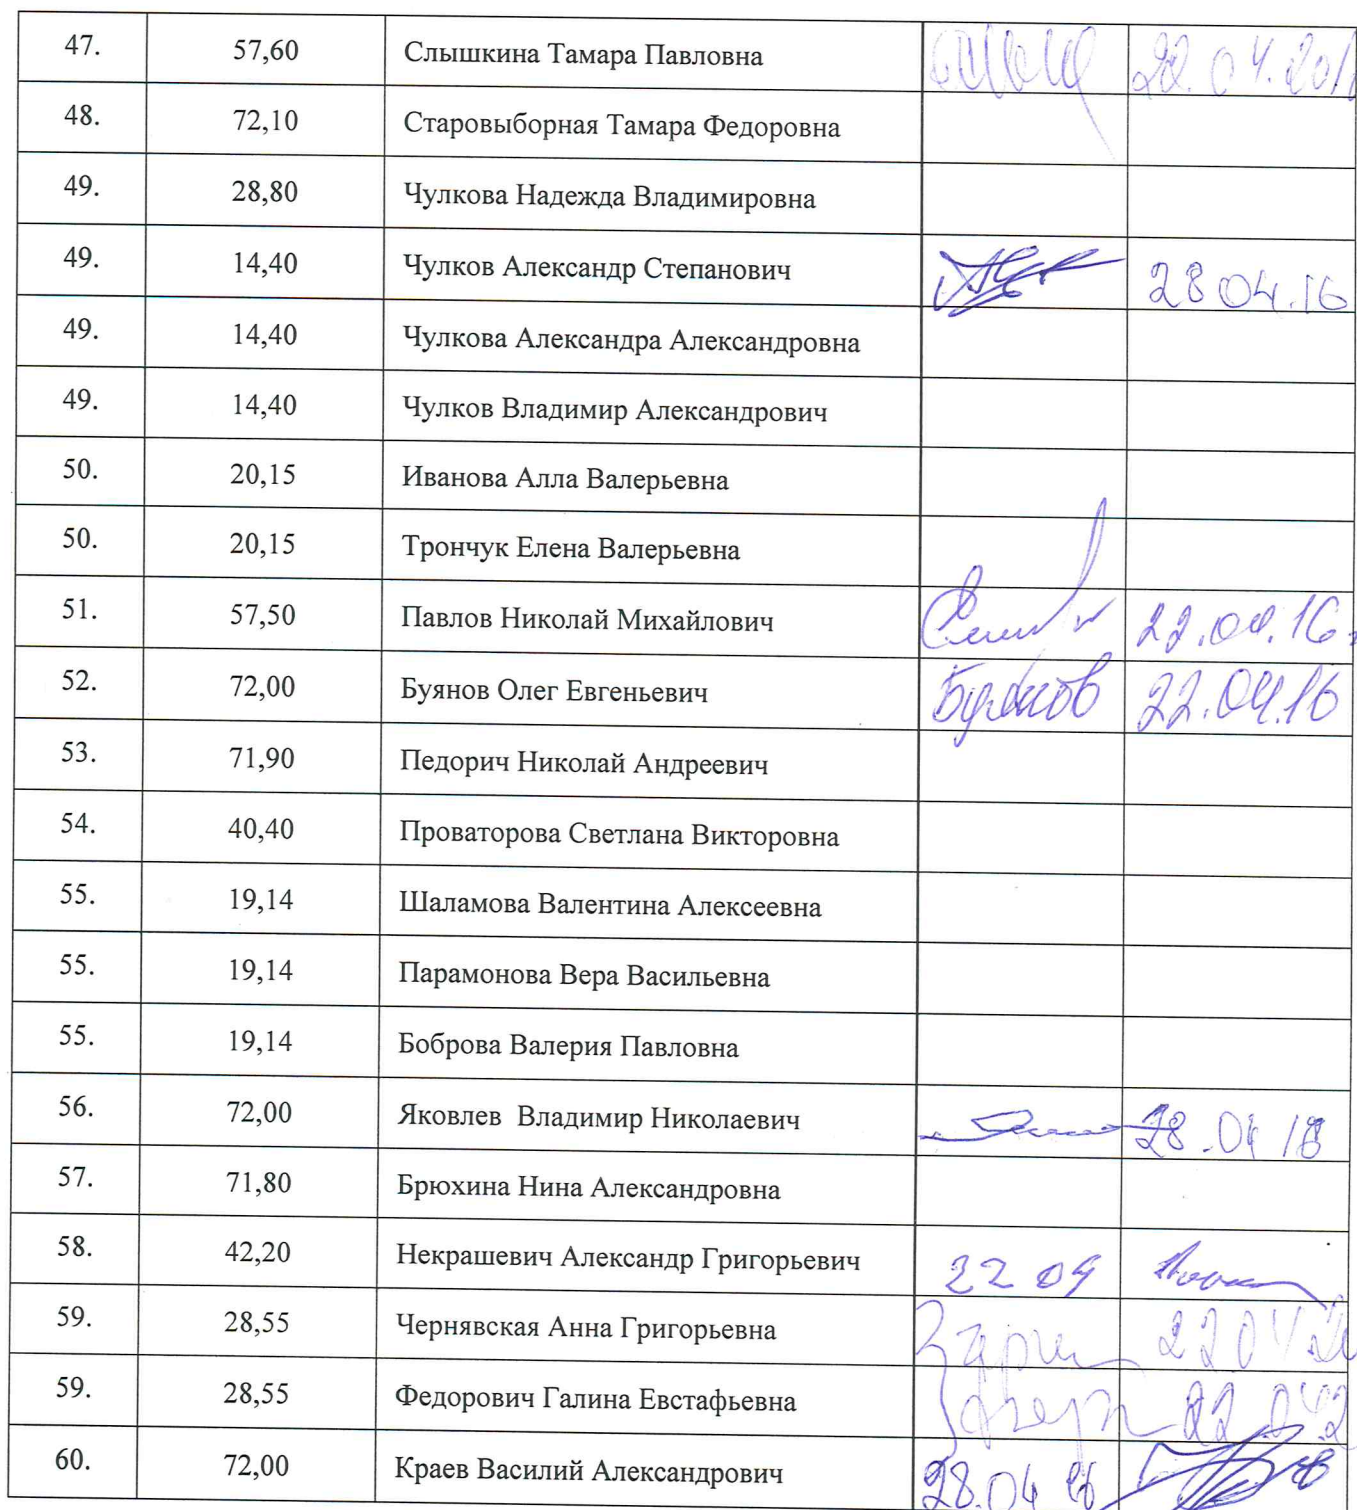 47. 57,60 Слышкина Тамара Павловна 22.04.201
48. 72,10 Старовыборная Тамара Федоровна
49. 28,80 Чулкова Надежда Владимировна
49. 14,40 Чулков Александр Степанович 28 04.16
49. 14,40 Чулкова Александра Александровна
49. 14,40 Чулков Владимир Александрович
50. 20,15 Иванова Алла Валерьевна
50. 20,15 Трончук Елена Валерьевна
51. 57,50 Павлов Николай Михайлович 22.04.16
52. 72,00 Буянов Олег Евгеньевич Буянов 22.04.16
53. 71,90 Педорич Николай Андреевич
54. 40,40 Проваторова Светлана Викторовна
55. 19,14 Шаламова Валентина Алексеевна
55. 19,14 Парамонова Вера Васильевна
55. 19,14 Боброва Валерия Павловна
56. 72,00 Яковлев Владимир Николаевич 28.04
57. 71,80 Брюхина Нина Александровна
58. 42,20 Некрашевич Александр Григорьевич 22 04
59. 28,55 Чернявская Анна Григорьевна 22 04 2
59. 28,55 Федорович Галина Евстафьевна 22.04.2
60. 72,00 Краев Василий Александрович 28.04 16